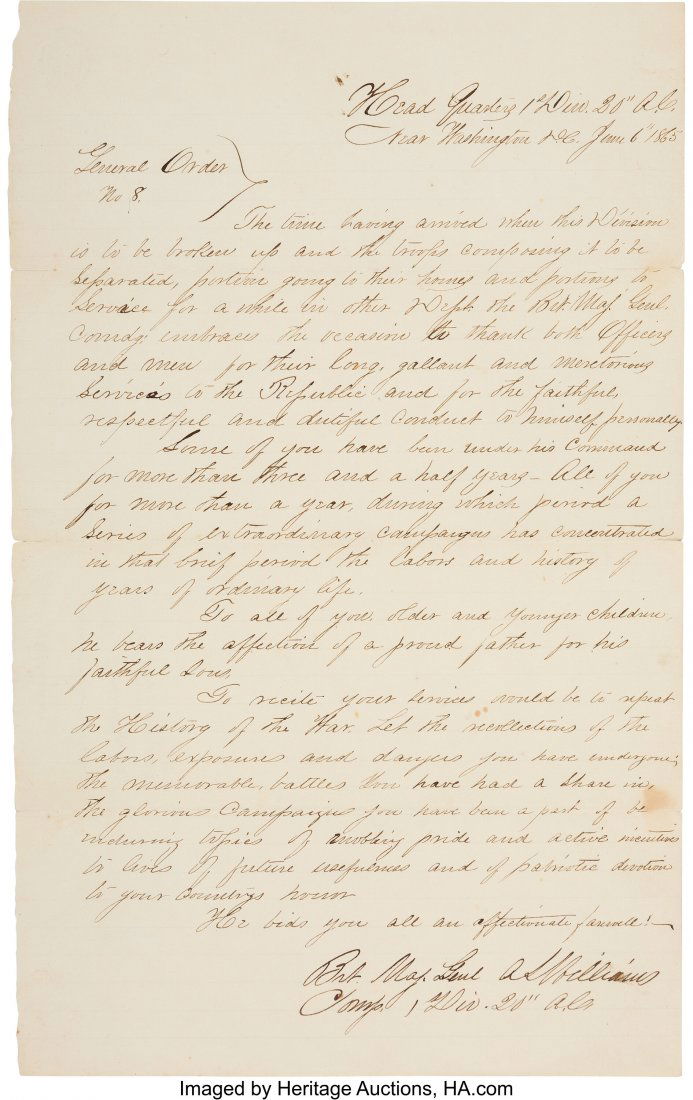 Head Quarters 1st Div. 20" A.C.
Near Washington D.C. June 6"/1865
General Order
No 8.
The time having arrived when this Division
is to be broken up and the troops composing it to be
separated, portion going to their homes and portions to
service for a while in other Dept. the Bvt. Maj. Genl.
Comdg. embraces the occasion to thank both Officers
and men for their long, gallant and meretorious
services to the Republic and for the faithful,
respectful and dutiful conduct to himself personally.
Some of you have been under his Command
for more than three and a half years - All of you
for more than a year, during which period a
series of extraordinary campaigns has concentrated
in that brief period the labors and history of
years of ordinary life.
To all of you, older and younger children,
he bears the affection of a proud father for his
faithful Sons,
To recite your services would be to repeat
the History of the War. Let the recollections of the
labors, exposures and dangers you have undergone;
the memorable, battles You have had a share in,
the glorious Campaigns you have been a part of be
enduring topics of ennobling pride and active incentives
to lives of future usefulness and of patriotic devotion
to your Countrys honor
He bids you all an affectionate farewell! -
Bvt. Maj. Genl A S Williams
Comg. 1 Div. 20" A.C.
Imaged by Heritage Auctions, HA.com